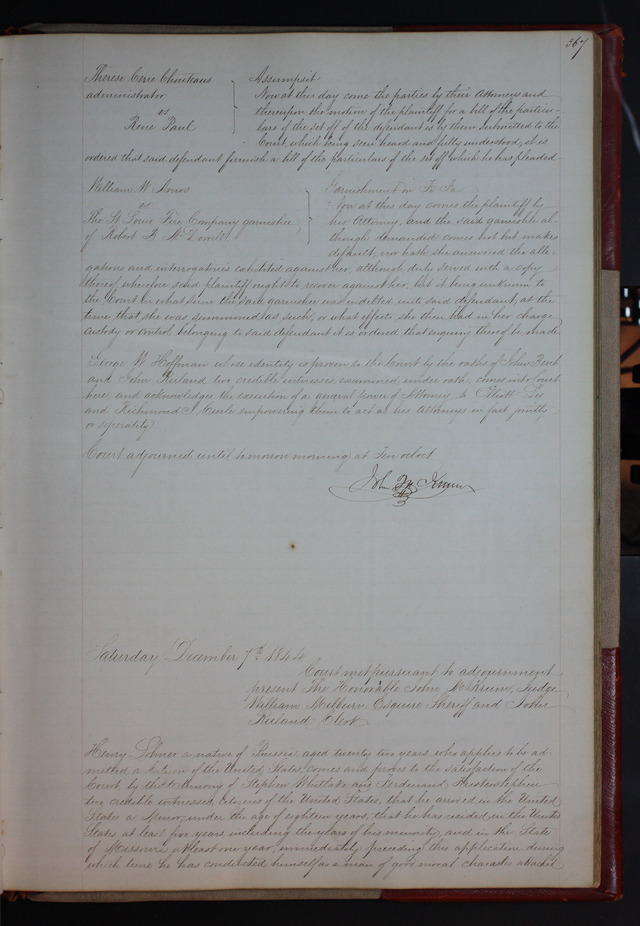 367
Therese Cerre Chouteaus Assumpsit
administrator Now at this day come the parties by their Attorneys and
vs thereupon the motion of the plaintiff for a bill of the particu-
Rene Paul lars of the set off of the defendant is by them submitted to the
Court, which being seen heard and fully understood, it is
ordered that said defendant furnish a bill of the particulars of the set off which he has pleaded
William W. Garnishment on Fi Fa
vs Now at this day comes the plaintiff by
The St Louis Fire Company garnishee his Attorney, and the said garnishee al-
of Robert though demanded comes not but makes
default, nor hath she answered the alle-
gations and interrogatories exhibited against her, although duly served with a copy
thereof, wherefore said plaintiff ought to recover against her, but it being unknown to
the Court in what sum the said garnishee was indebted unto said defendant, at the
time that she was summoned as such, or what effects she then had in her charge
custody or control belonging to said defendant it is ordered that enquiry thereof be made
George W. Hoffman whose identity is proven to the Court by the oaths of John Bent
and John Ruland two credible witnesses examined under oath, comes into Court
here and acknowledges the execution of a general power of Attorney to Elliott Lee
and Richmond J. empowering them to act as his Attorneys in fact jointly
or seperately
Court adjourned until tomorrow morning at Ten oclock
John M. Krum
Saturday December 7th 1844
Court met pursuant to adjournment
present The Honorable John M. Krum, Judge
William Milburn Esquire Sheriff and John
Ruland Clerk
Henry a native of Prussia aged twenty two years, who applies to be ad-
mitted a Citizen of the United States, comes and proves to the satisfaction of the
Court by the testimony of Stephen and Ferdinand
two credible witnesses, citizens of the United States, that he arrived in the United
States a Minor, under the age of eighteen years, that he has resided in the United
States at least five years including the years of his minority, and in the State
of Missouri at least one year, immediately preceding this application during
which time he has conducted himself as a man of good moral character attached